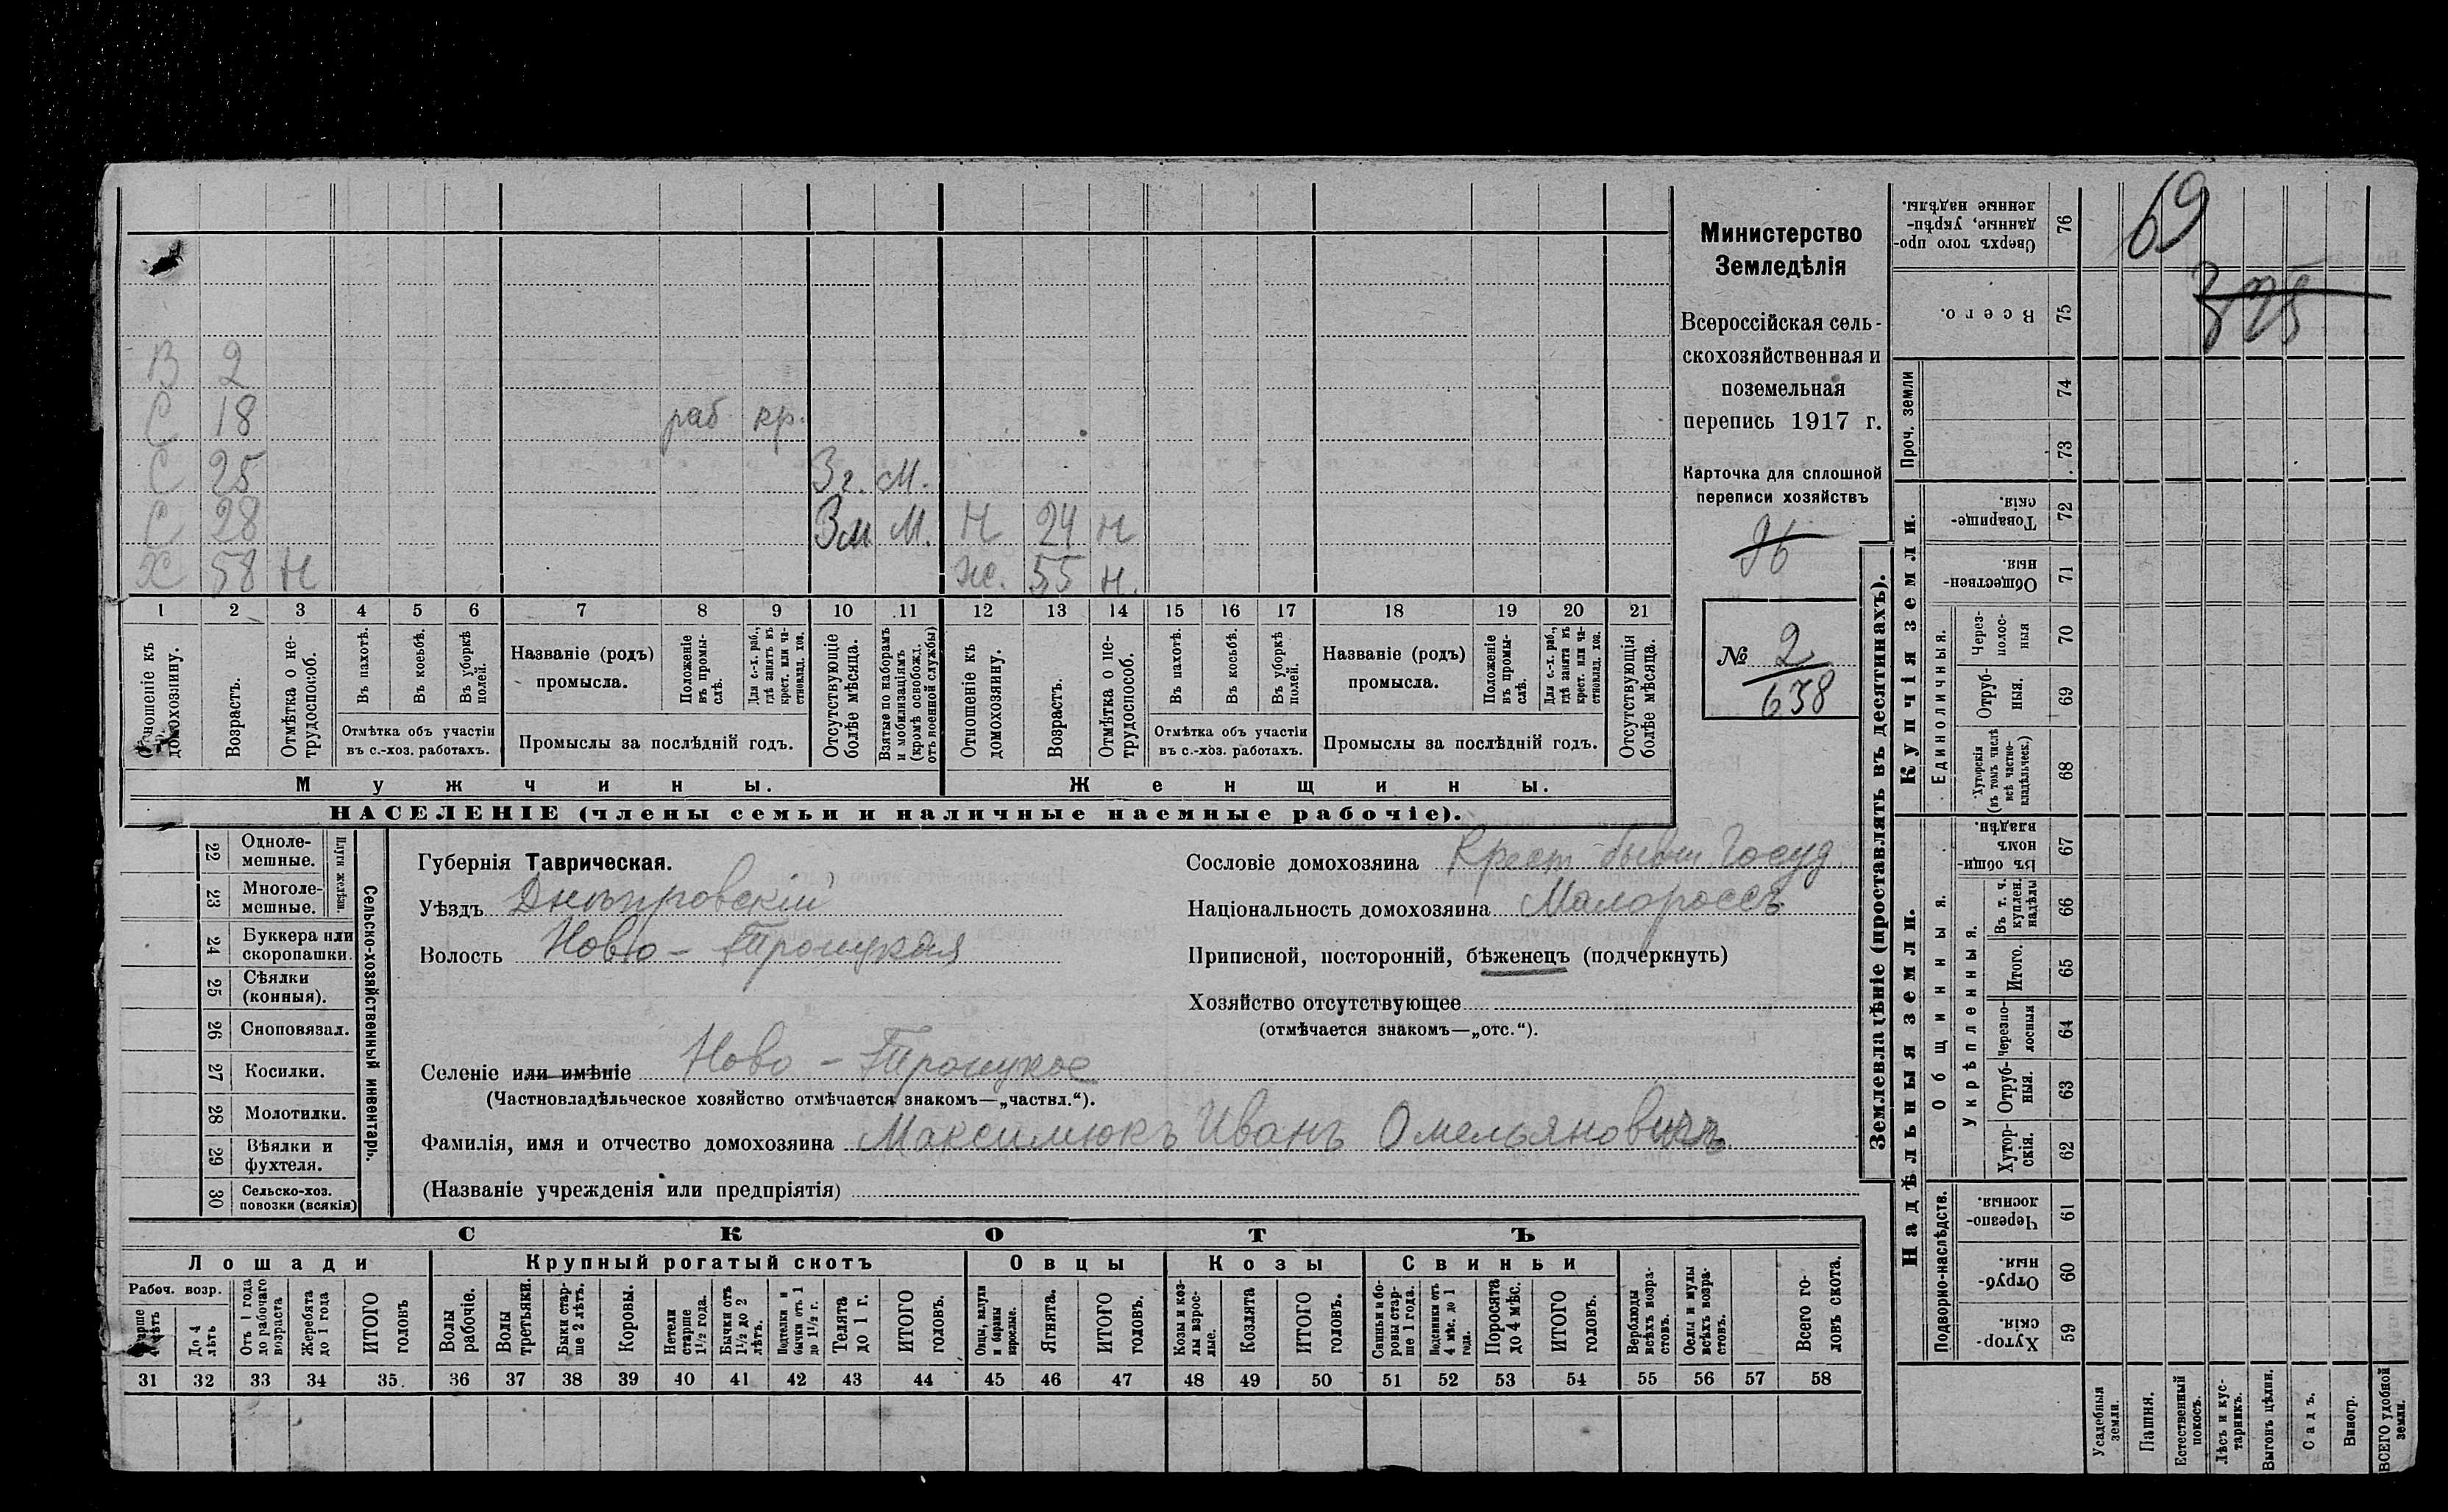 В 2
С 18 раб кр.
С 25 Зг. М.
С 28 Зм М. Н 24 Н
Х 58 Н Ж. 55 Н.
1 2 3 4 5 6 7 8 9 10 11 12 13 14 15 16 17 18 19 20 21
Отношеніе къ домохозяину.
Возрастъ.
Отмѣтка о не-трудоспособ.
Въ пахотѣ.
Въ косьбѣ.
Въ уборкѣ полей.
Отмѣтка объ участіи въ с.-хоз. работахъ.
Названіе (родъ) промысла.
Положеніе въ промы-слѣ.
Для с.-х. раб., гдѣ занятъ въ крест. или ча-стновлад. хоз.
Промыслы за послѣдній годъ.
Отсутствующіе болѣе мѣсяца.
Взятые по наборамъ и мобилизаціямъ (кромѣ освобожд. отъ военной службы)
Отношеніе къ домохозяину.
Возрастъ.
Отмѣтка о не-трудоспособ.
Въ пахотѣ.
Въ косьбѣ.
Въ уборкѣ полей.
Отмѣтка объ участіи въ с.-хоз. работахъ.
Названіе (родъ) промысла.
Положеніе въ промы-слѣ.
Для с.-х. раб., гдѣ занята въ крест. или ча-стновлад. хоз.
Промыслы за послѣдній годъ.
Отсутствующія болѣе мѣсяца.
Мужчины.
Женщины.
НАСЕЛЕНІЕ (члены семьи и наличные наемные рабочіе).
Министерство
Земледѣлія
Всероссійская сель-
скохозяйственная и
поземельная
перепись 1917 г.
Карточка для сплошной
переписи хозяйствъ
96
№ 2
638
22 Одноле-мешные.
23 Многоле-мешные.
Плуги желѣзн.
24 Буккера или скоропашки.
25 Сѣялки (конныя).
26 Сноповязал.
27 Косилки.
28 Молотилки.
29 Вѣялки и фухтеля.
30 Сельско-хоз. повозки (всякія)
Сельско-хозяйственный инвентарь.
Губернія Таврическая.
Уѣздъ Днѣпровскій
Волость Ново-Троицкая
Селеніе или имѣніе Ново-Троицкое
(Частновладѣльческое хозяйство отмѣчается знакомъ—„частвл.“).
Фамилія, имя и отчество домохозяина Максимюкъ Иванъ Омельяновичъ
(Названіе учрежденія или предпріятія)
Сословіе домохозяина Крест бывш. Госуд
Національность домохозяина Малороссъ
Приписной, посторонній, бѣженецъ (подчеркнуть)
Хозяйство отсутствующее
(отмѣчается знакомъ—„отс.“).
СКОТЪ
Лошади
Крупный рогатый скотъ
Овцы
Козы
Свиньи
Рабоч. возр.
Старше 4 лѣтъ
До 4 лѣтъ
Отъ 1 года до рабочаго возраста
Жеребята до 1 года
ИТОГО головъ
Волы рабочіе.
Волы третьяки.
Быки стар-ше 2 лѣтъ.
Коровы.
Нетели старше 1½ года.
Бычки отъ 1½ до 2 лѣтъ.
Подтелки и бычки отъ 1 до 1½ г.
Телята до 1 г.
ИТОГО головъ.
Овцы, валухи и бараны взрослые.
Ягнята.
ИТОГО головъ.
Козы и коз-лы взрос-лые.
Козлята
ИТОГО головъ.
Свиньи и бо-ровы стар-ше 1 года.
Подсвинки отъ 4 мѣс. до 1 года.
Поросята до 4 мѣс.
ИТОГО головъ.
Верблюды всѣхъ возра-стовъ.
Ослы и мулы всѣхъ возра-стовъ.
Всего го-ловъ скота.
31 32 33 34 35. 36 37 38 39 40 41 42 43 44 45 46 47 48 49 50 51 52 53 54 55 56 57 58
Землевладѣніе (проставлять въ десятинахъ).
69
375
Сверхъ того про-данные, укрѣп-ленные надѣлы. 76
Всего. 75
Проч. земли 74
73
Купчія земли.
Товарище-скія. 72
Обществен-ныя. 71
Единоличныя.
Через-полос-ныя 70
Отруб-ныя. 69
Хуторскія (въ томъ числѣ всѣ частно-владѣльческ.) 68
Надѣльныя земли.
Общинныя.
Въ общин-номъ владѣн. 67
Укрѣпленныя.
Въ т. ч. куплен. надѣлы 66
Итого. 65
Черезпо-лосныя 64
Отруб-ныя. 63
Хутор-скія. 62
Подворно-наслѣдств.
Черезпо-лосныя. 61
Отруб-ныя. 60
Хутор-скія. 59
Усадебныя земли.
Пашня.
Естественный покосъ.
Лѣсъ и кус-тарникъ.
Выгонъ цѣлин.
Садъ.
Виногр.
ВСЕГО удобной земли.